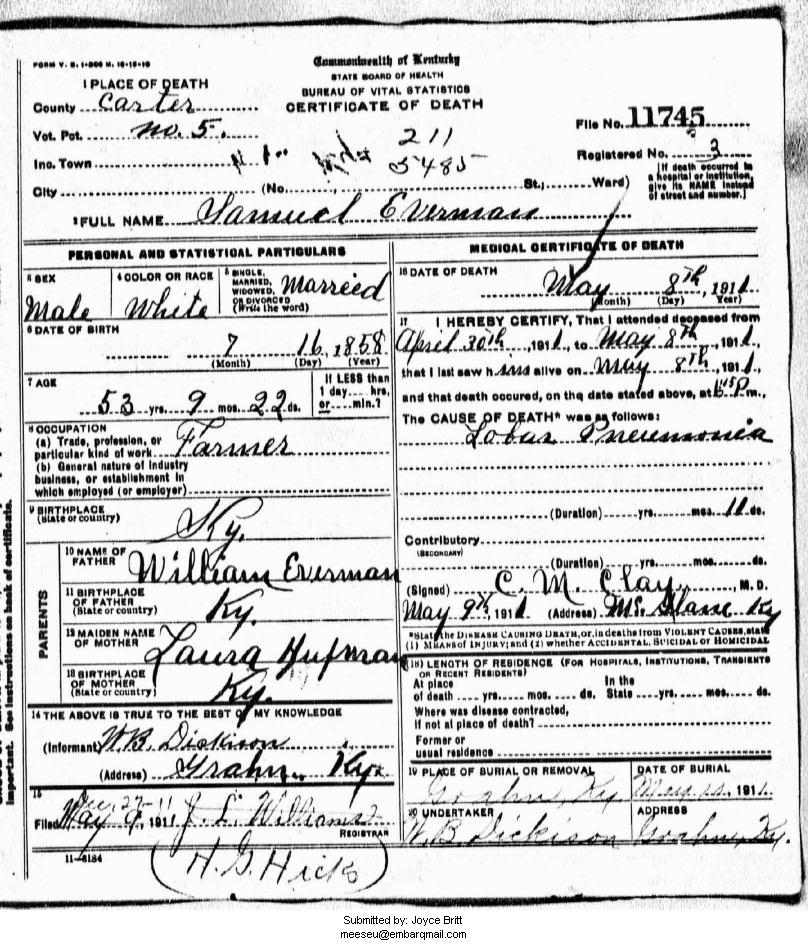 FORM V. S. 1-
Commonwealth of Kentucky
STATE BOARD OF HEALTH
BUREAU OF VITAL STATISTICS
CERTIFICATE OF DEATH
1 PLACE OF DEATH
County Carter
Vot. Pct. No. 5.
Inc. Town
City (No. St.; Ward)
211
5485
File No. 11745
Registered No. 3
[If death occurred in a hospital or institution, give its NAME instead of street and number.]
2 FULL NAME Samuel Everman
PERSONAL AND STATISTICAL PARTICULARS
3 SEX
Male
4 COLOR OR RACE
White
5 SINGLE, MARRIED, WIDOWED, OR DIVORCED (Write the word)
Marreed
6 DATE OF BIRTH
7 16, 1858
(Month) (Day) (Year)
7 AGE
53 yrs. 9 mos. 22 ds.
If LESS than 1 day.... hrs, or.... min.?
8 OCCUPATION
(a) Trade, profession, or particular kind of work Farmer
(b) General nature of industry business, or establishment in which employed (or employer)
9 BIRTHPLACE (State or country)
Ky.
PARENTS
10 NAME OF FATHER
William Everman
11 BIRTHPLACE OF FATHER (State or country)
Ky.
12 MAIDEN NAME OF MOTHER
Laura Hufman
13 BIRTHPLACE OF MOTHER (State or country)
Ky.
14 THE ABOVE IS TRUE TO THE BEST OF MY KNOWLEDGE
(Informant) W.B. Dickison
(Address) Grahn, Ky.
15
Dec, 27-11
Filed May 9, 1911 J. L. Williams
REGISTRAR
11-3184
H. G. Hicks
MEDICAL CERTIFICATE OF DEATH
16 DATE OF DEATH
May 8th, 1911
(Month) (Day) (Year)
17 I HEREBY CERTIFY, That I attended deceased from
April 30th, 1911, to May 8th, 1911,
that I last saw him alive on May 8th, 1911,
and that death occured, on the date stated above, at m.,
The CAUSE OF DEATH* was as follows:
Lobar Pneumonia
(Duration) yrs. mos. 11 ds.
Contributory
(SECONDARY)
(Duration) yrs. mos. ds.
(Signed) C. M. Clay, M. D.
May 9th, 1911 (Address) Ky
*State the DISEASE CAUSING DEATH, or, in deaths from VIOLENT CAUSES, state (1) MEANS OF INJURY; and (2) whether ACCIDENTAL, SUICIDAL OR HOMICIDAL
(18) LENGTH OF RESIDENCE (FOR HOSPITALS, INSTITUTIONS, TRANSIENTS OR RECENT RESIDENTS)
At place of death yrs. mos. ds. In the State yrs. mos. ds.
Where was disease contracted, if not at place of death?
Former or usual residence
19 PLACE OF BURIAL OR REMOVAL
Grahn, Ky.
DATE OF BURIAL
May 10, 1911
20 UNDERTAKER
W B Dickison
ADDRESS
Grahn, Ky.
important. See instructions on back of certificate.
Submitted by: Joyce Britt
meeseu@embarqmail.com